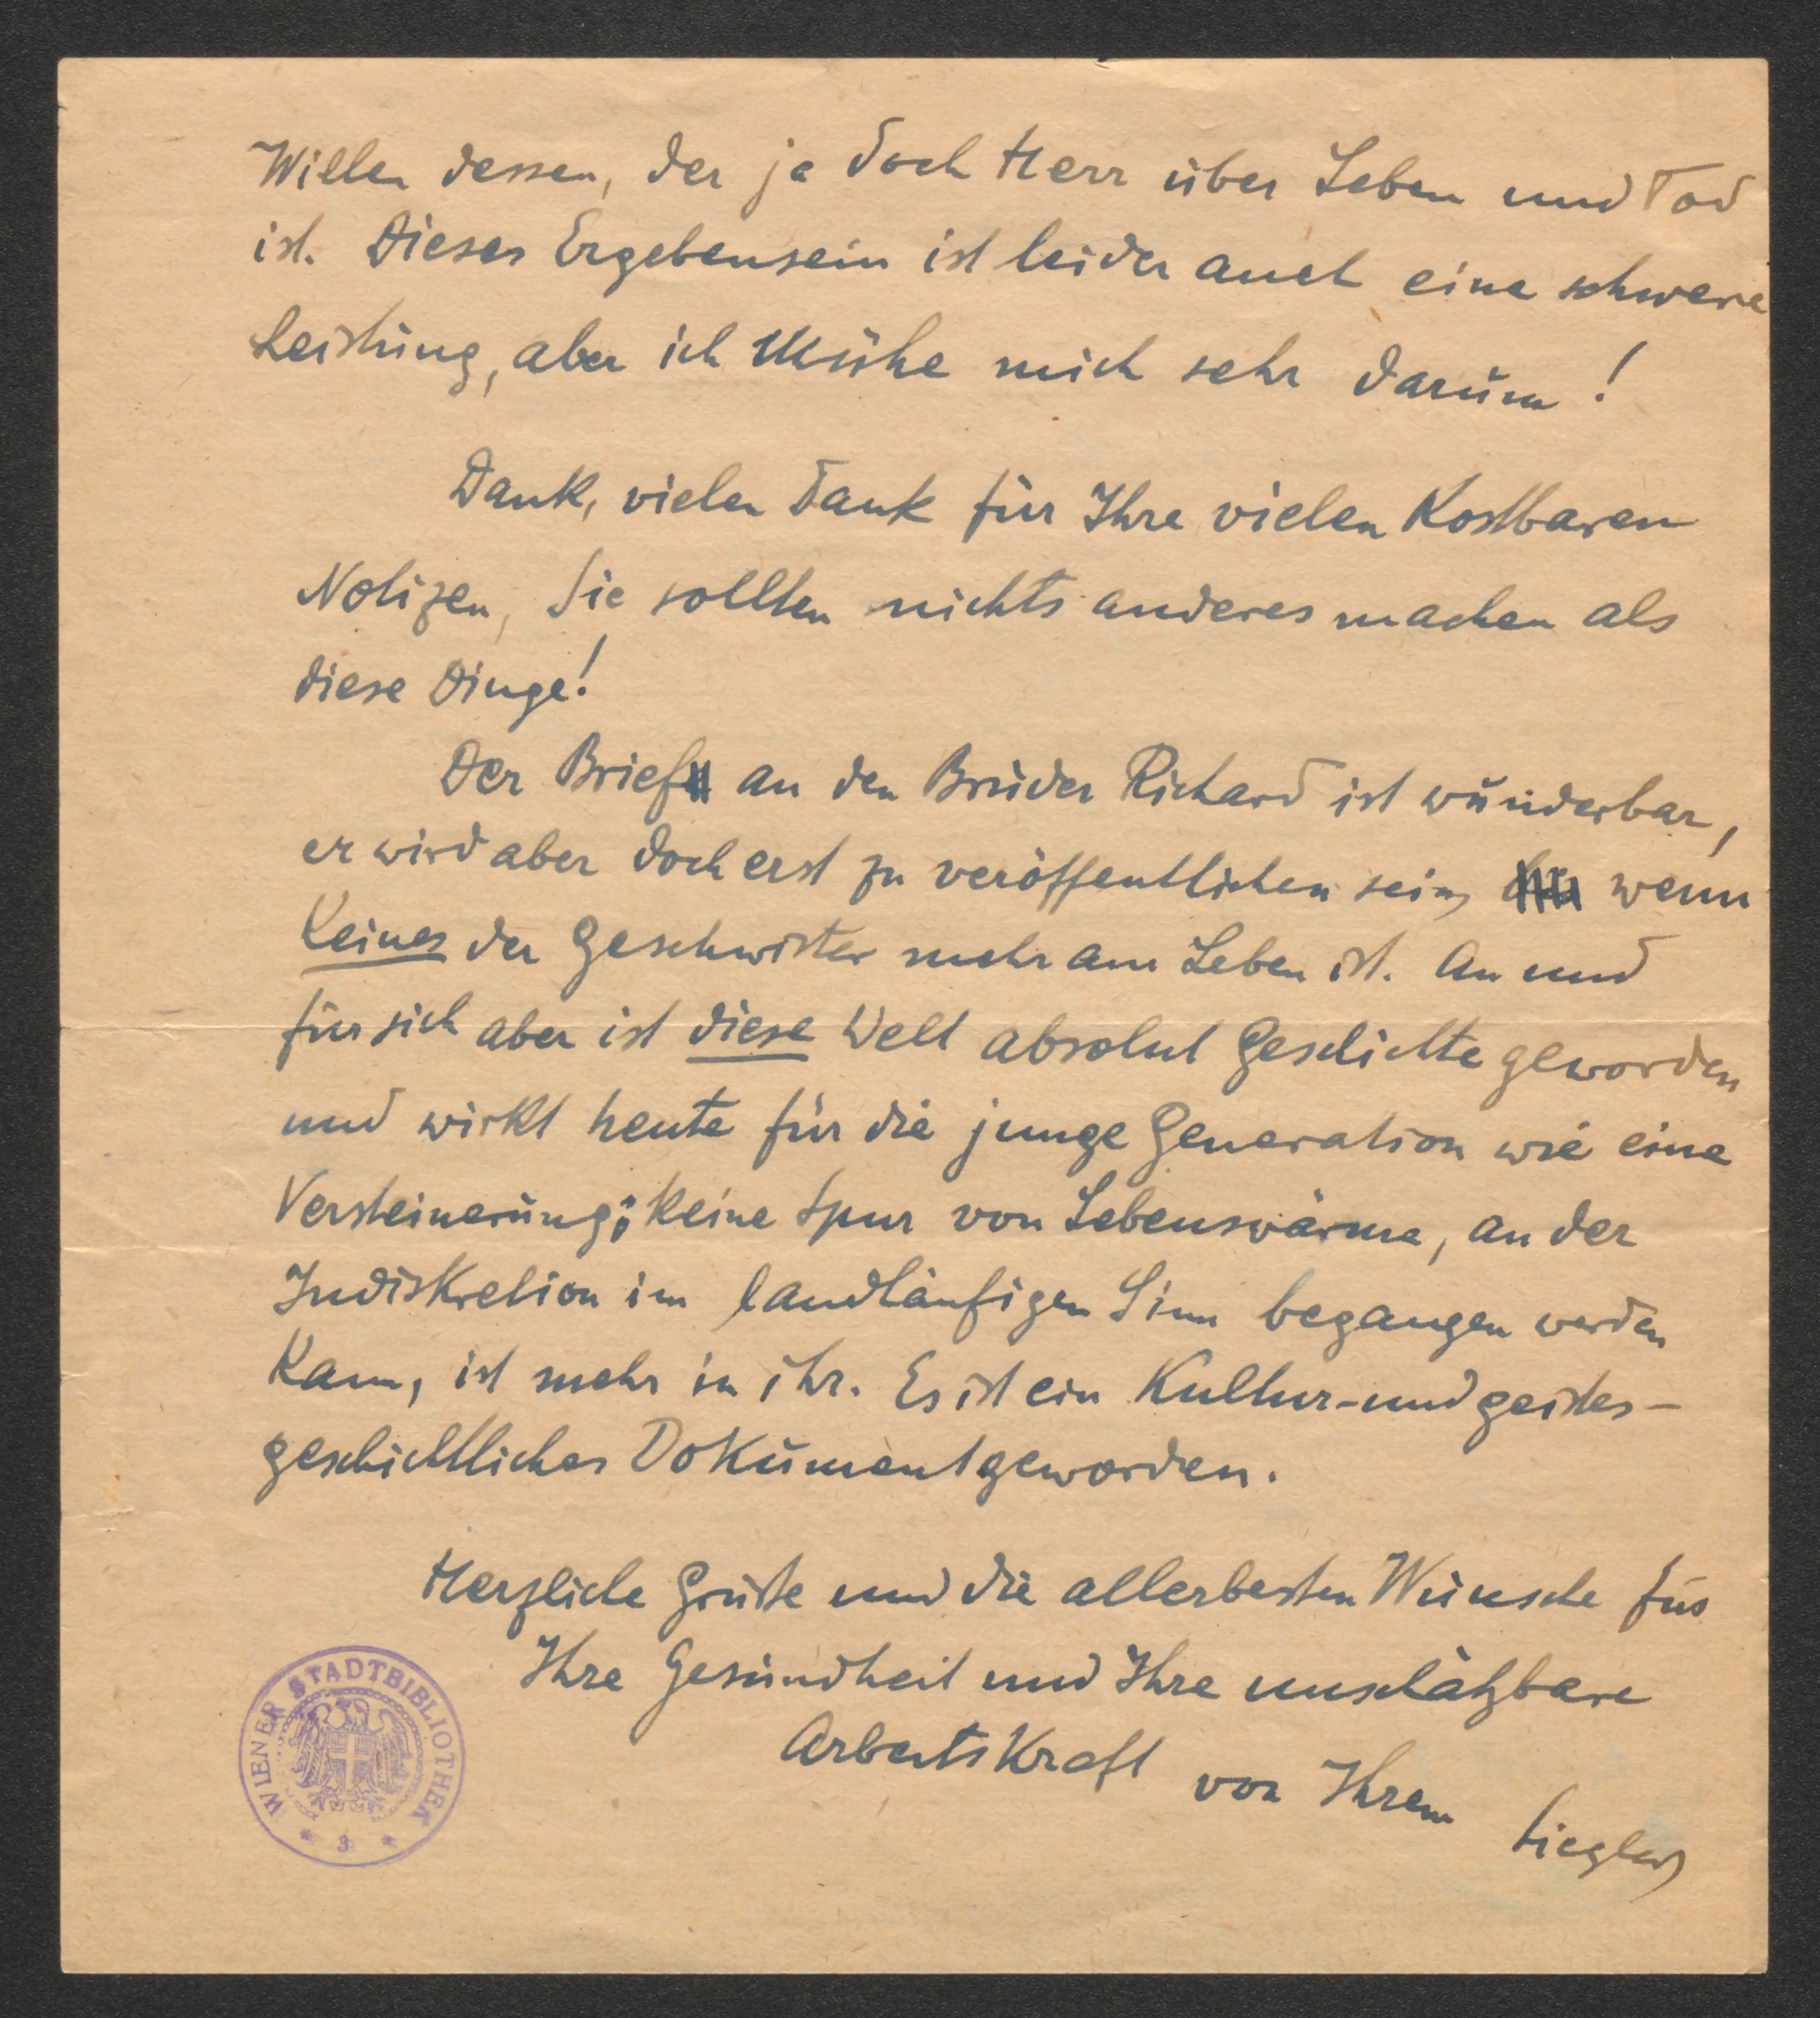 Willen dessen, der ja doch Herr über Leben und Tod
ist. Dieses Ergebensein ist leider auch eine schwere
Leistung, aber ich mühe mich sehr darum!
Dank, vielen Dank für Ihre vielen Kostbaren
Notizen, Sie sollten nichts anderes machen als
diese Dinge!
Der Brief an den Bruder Richard ist wunderbar,
er wird aber doch erst zu veröffentlichen sein, wenn
Keines der Geschwister mehr am Leben ist. An und
für sich aber ist diese Welt absolut Geschichte geworden
und wirkt heute für die junge Generation wie eine
Versteinerung; Keine Spur von Lebenswärme, an der
Indiskretion im landläufigen Sinn begangen werden
Kann, ist mehr in ihr. Es ist ein Kultur-und geistes-
geschichtliches Dokument geworden.
Herzliche Grüße und die allerbesten Wünsche für
Ihre Gesundheit und Ihre unschätzbare
Arbeitskraft von Ihrem Siegler
WIENER STADTBIBLIOTHEK
* 3 *